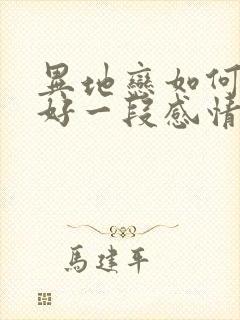 異地戀如何
好一段感情
馬建平